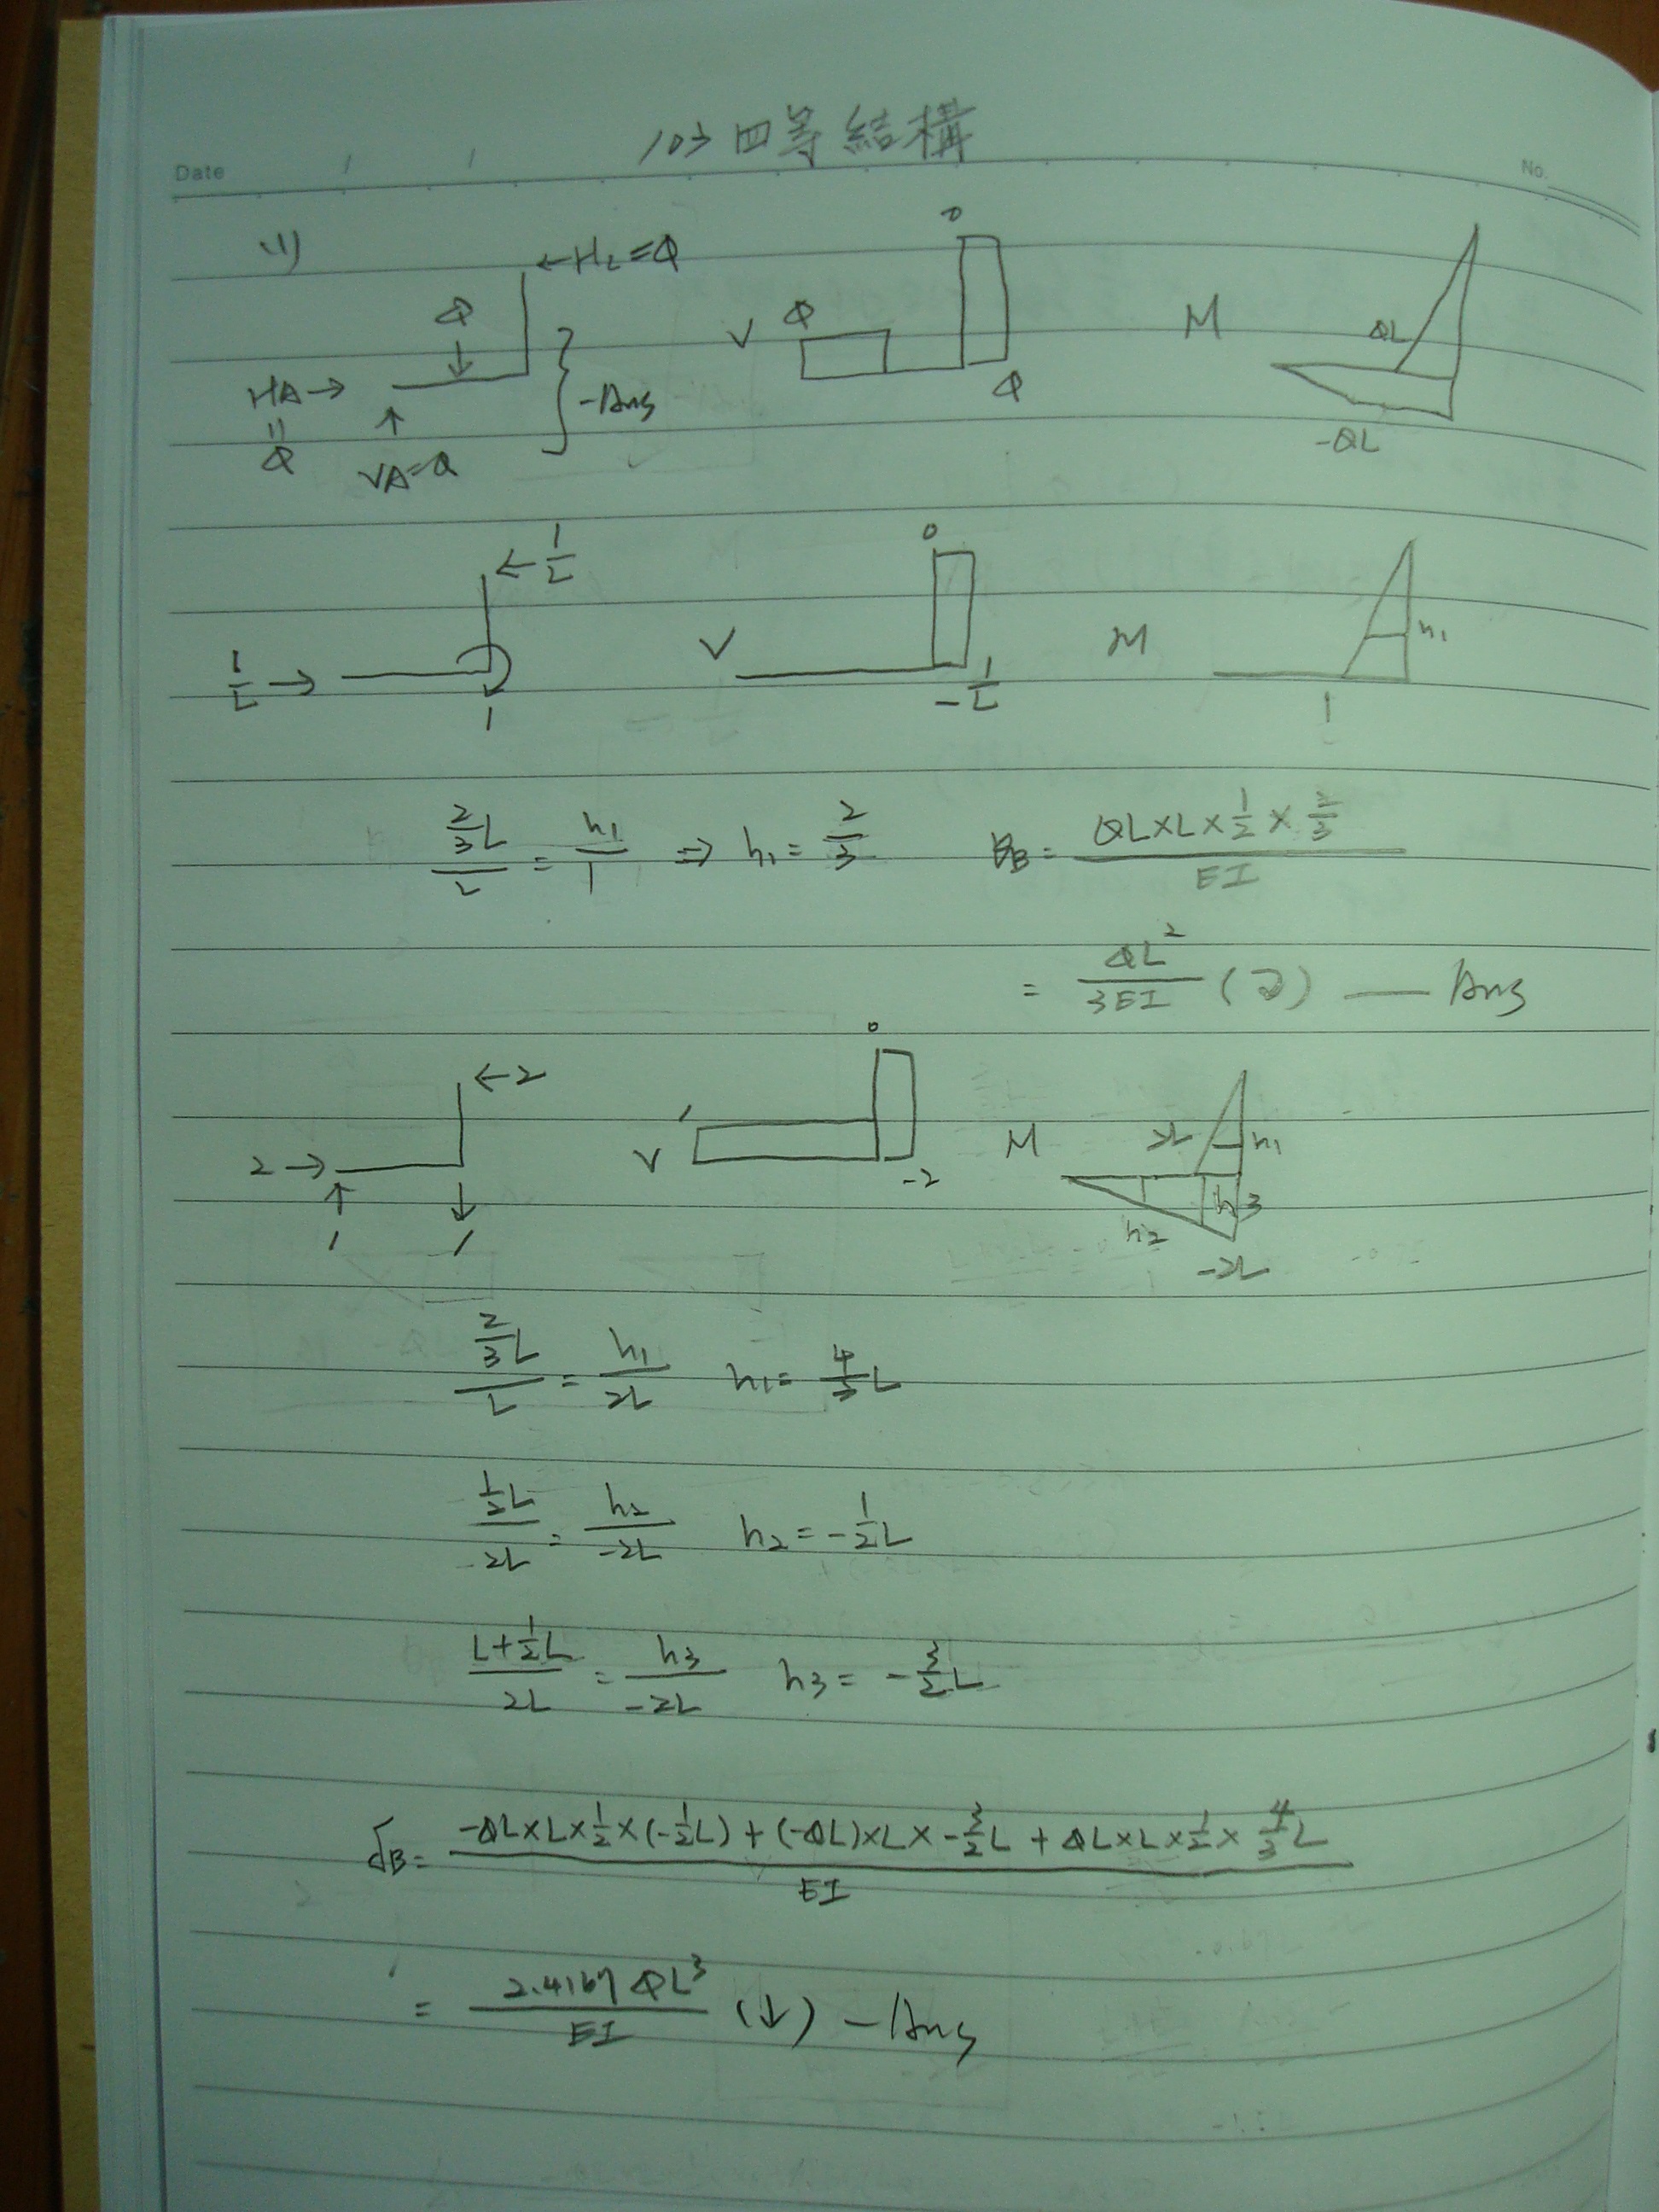 103 四等結構
Date
No.
(1)
←H2=Q
Q
↓
HA→
=
Q
↑
VA=Q
-Ans
V
Q
0
Q
M
QL
-QL
←1/L
1/L→
1
V
0
-1/L
M
h1
1
(2/3L)/L = h1/1 ⇒ h1 = 2/3
θB = (QL×L×1/2×2/3)/EI
= QL²/3EI (↻) — Ans
←2
2→
↑
1
↓
1
V
1
0
-2
M
2L
h1
h2
h3
-2L
(2/3L)/L = h1/2L h1 = 4/3L
(1/2L)/-2L = h2/-2L h2 = -1/2L
(L+1/2L)/2L = h3/-2L h3 = -3/2L
δB = (-QL×L×1/2×(-1/2L)+(-QL)×L×-3/2L+QL×L×1/2×4/3L)/EI
= 2.4167QL³/EI (↓) -Ans